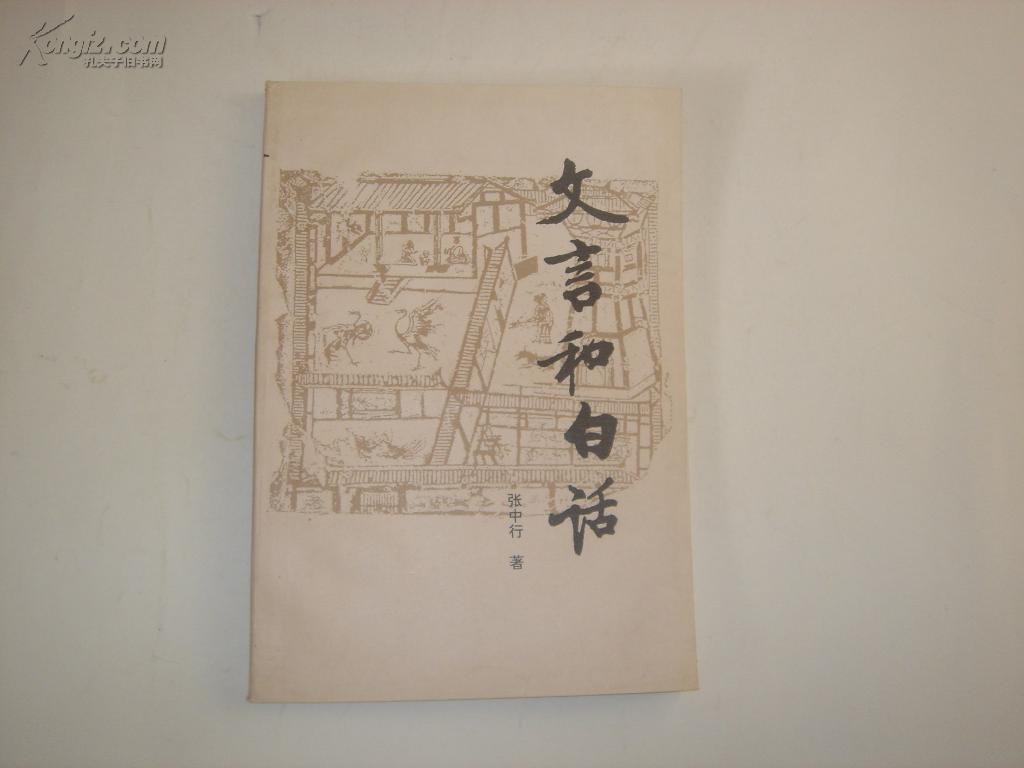 Kongfz.com
孔夫子旧书网
文言和白话
张中行 著